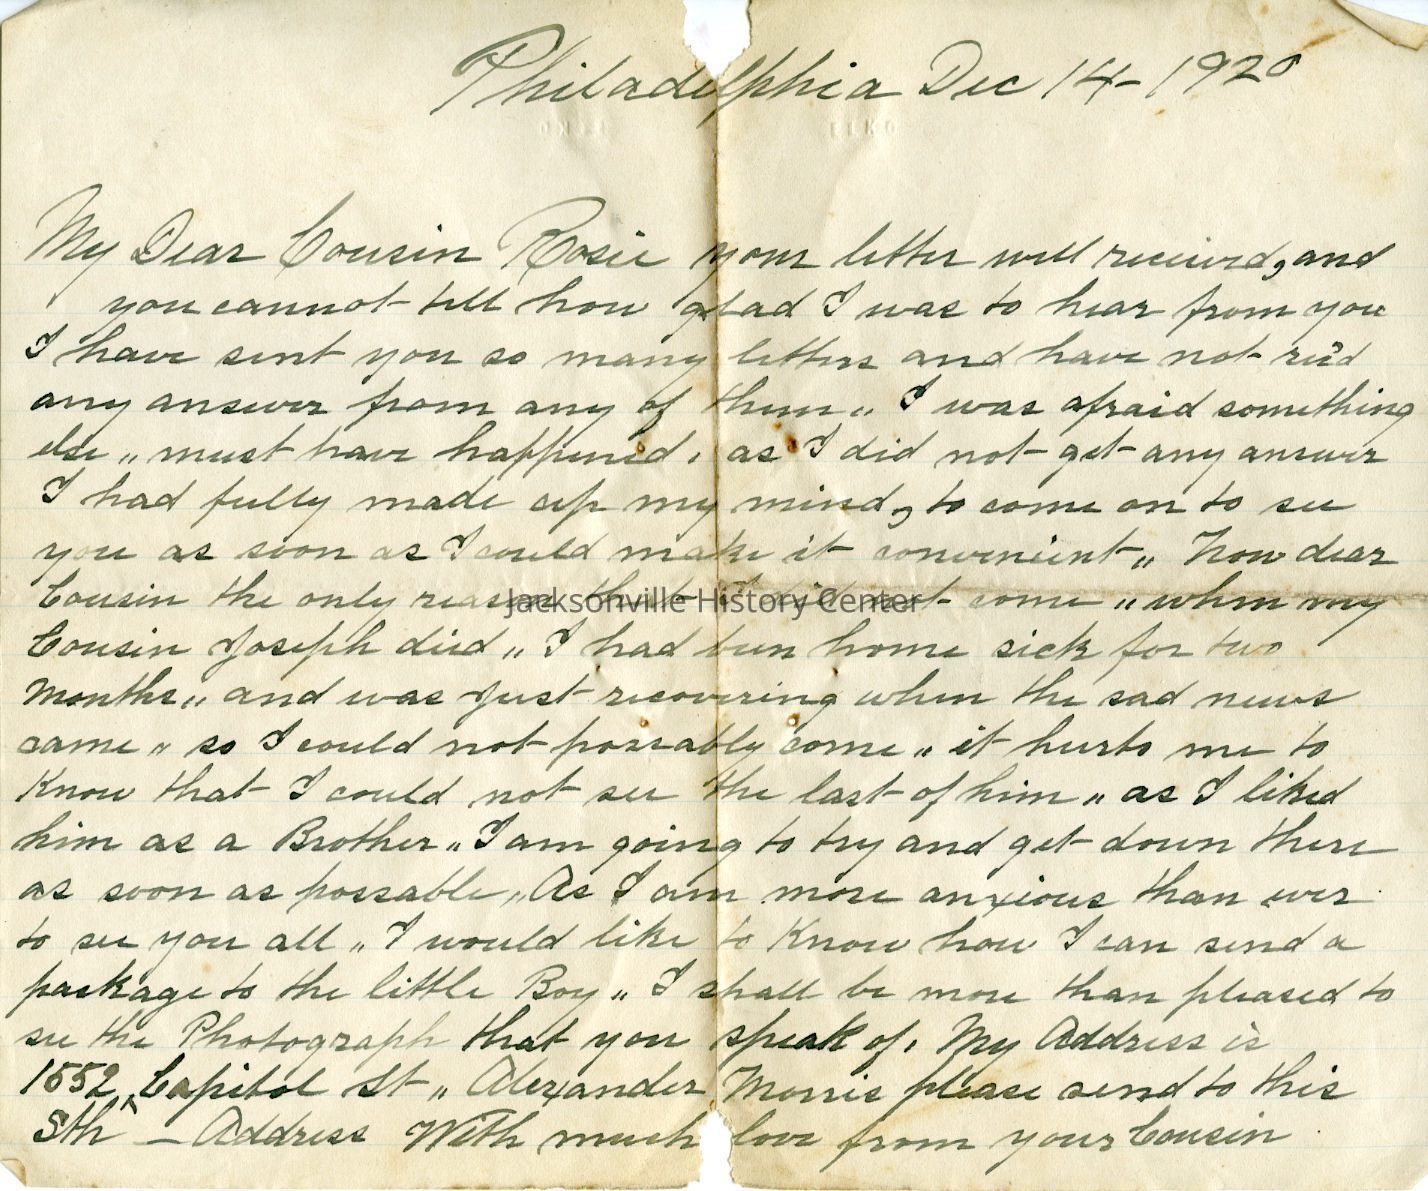 Philadelphia Dec 14-1920
ELKO
My Dear Cousin Rosie your letter well received, and
you cannot tell how glad I was to hear from you
I have sent you so many letters and have not rec'd
any answer from any of them „ I was afraid something
else „ must have happened, as I did not get any answer
I had fully made up my mind, to come on to see
you as soon as I could make it convenient „ now dear
Cousin the only reason that I did not come „ when my
Jacksonville History Center
Cousin Joseph died „ I had been home sick for two
months „ and was Just recovering when the sad news
came „ so I could not possably come „ it hurts me to
Know that I could not see the last of him „ as I liked
him as a Brother „ I am going to try and get down there
as soon as possable „ As I am more anxious than ever
to see you all „ I would like to Know how I can send a
package to the little Boy „ I shall be more than pleased to
see the Photograph that you speak of. My Address is
1552 Capitol St „ Alexander Morris please send to this
Sth — Address With much love from your Cousin